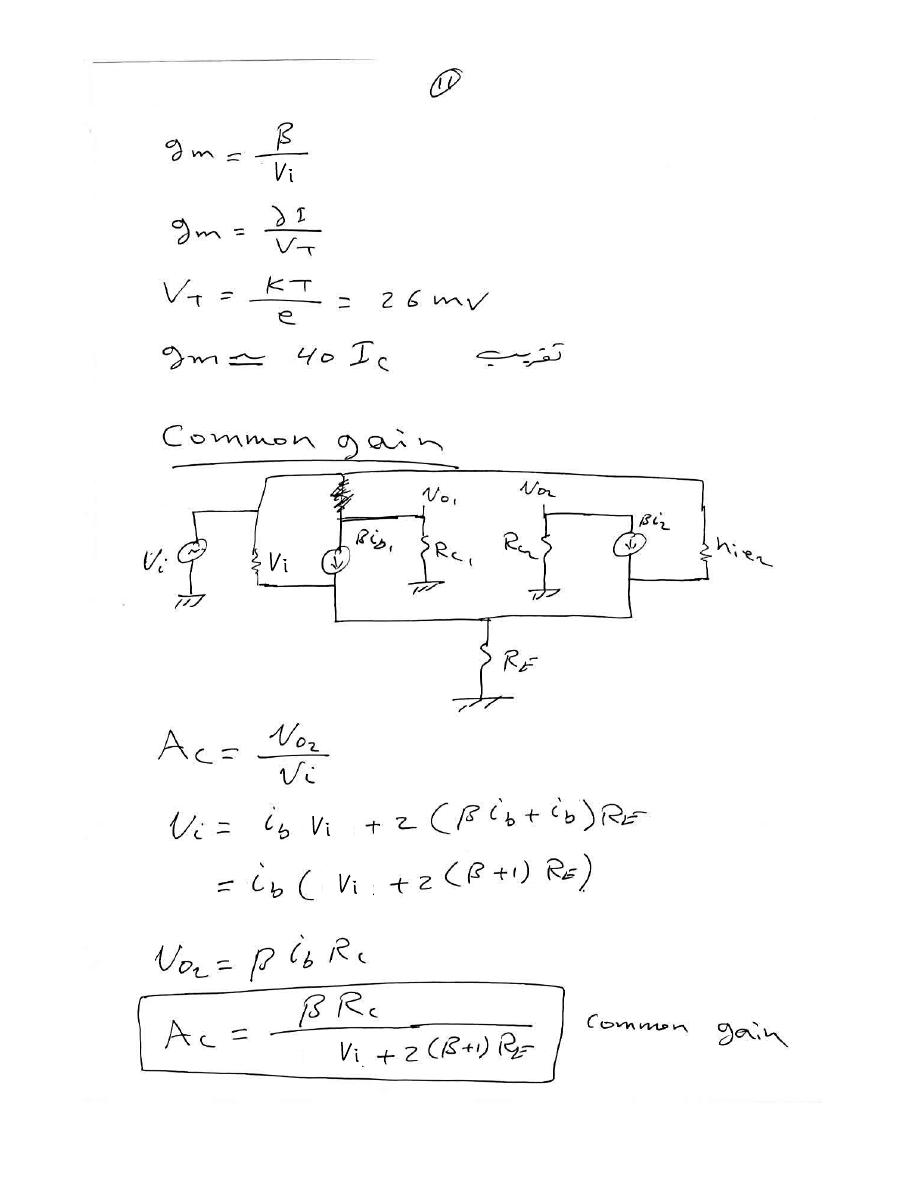 11
gm = β / Vi
gm = ∂I / VT
VT = KT / e = 26 mV
gm ≃ 40 Ic تقريب
Common gain
Vo1 Vo2
Vi Vi βib1 Rc1 Rc2 βi2 hie2
RE
Ac = Vo2 / Vi
Vi = ib Vi + 2 (β ib + ib) RE
= ib ( Vi + 2 (β+1) RE)
Vo2 = β ib Rc
Ac = β Rc / Vi + 2 (β+1) RE common gain